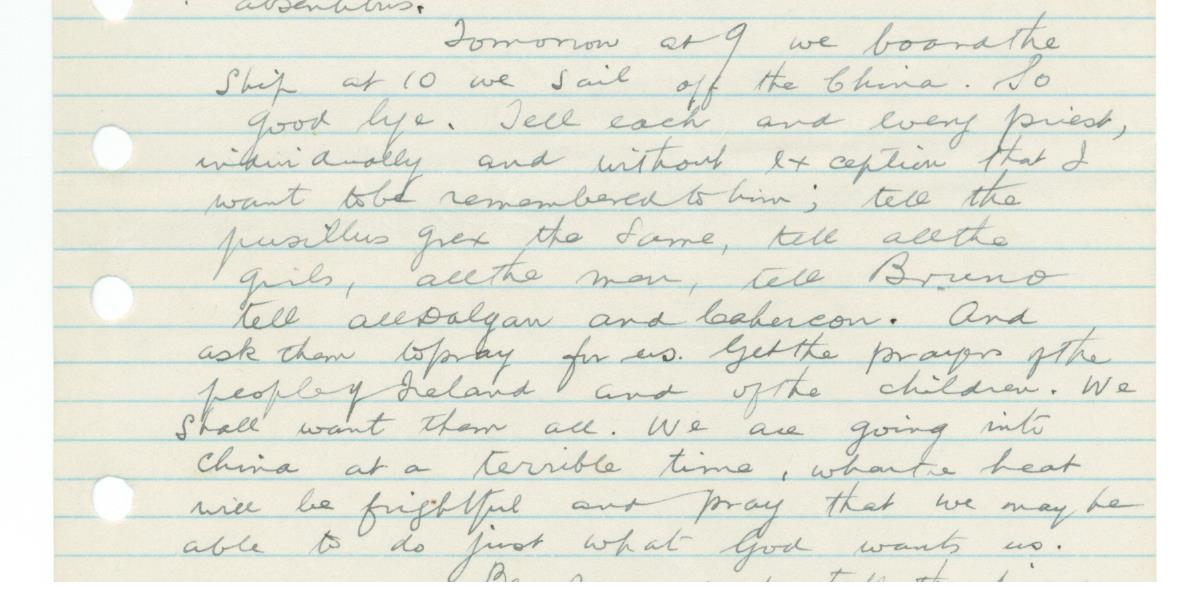 absentibus.
Tomorrow at 9 we board the
ship at 10 we sail off the China. So
good bye. Tell each and every priest,
individually and without exception that I
want to be remembered to him; tell the
pusillus grex the same, tell all the
girls, all the men, tell Bruno
tell all Dalgan and Cahercon. And
ask them to pray for us. Get the prayers of the
people of Ireland and of the children. We
shall want them all. We are going into
China at a terrible time, heat
will be frightful and pray that we may be
able to do just what God wants us.